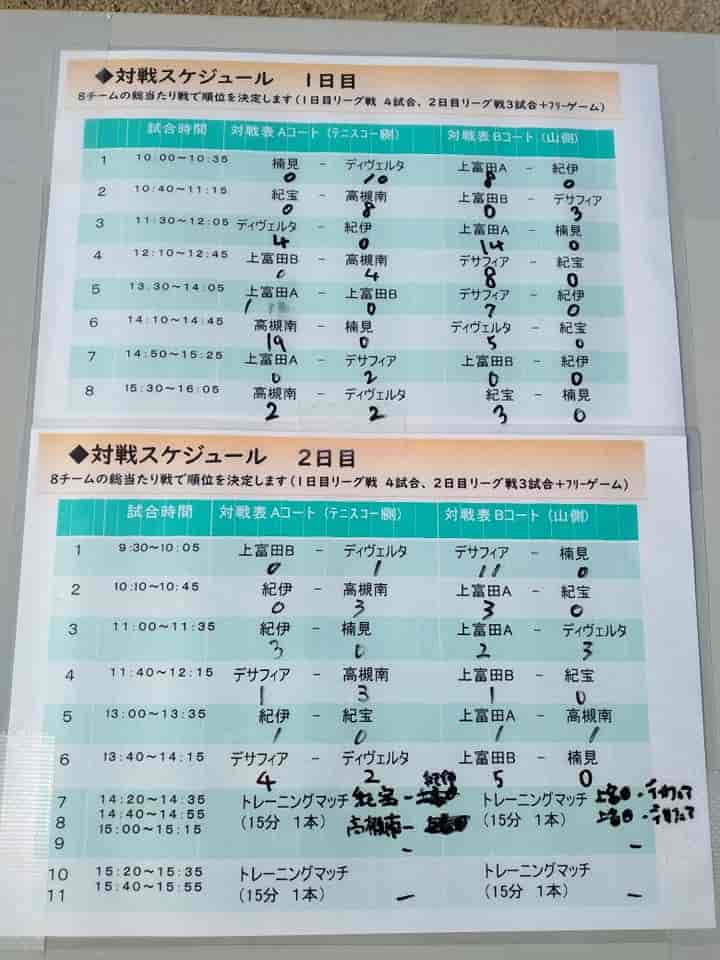 ◆対戦スケジュール 1日目
8チームの総当たり戦で順位を決定します(1日目リーグ戦 4試合、2日目リーグ戦3試合+フリーゲーム)
試合時間 対戦表 Aコート (テニスコート側) 対戦表 Bコート (山側)
1 10:00~10:35 楠見 - ディヴェルタ 上富田A - 紀伊
0 10 8 0
2 10:40~11:15 紀宝 - 高槻南 上富田B - デサフィア
0 8 0 3
3 11:30~12:05 ディヴェルタ - 紀伊 上富田A - 楠見
4 0 14 0
4 12:10~12:45 上富田B - 高槻南 デサフィア - 紀宝
0 4 8 0
5 13:30~14:05 上富田A - 上富田B デサフィア - 紀伊
1 0 7 0
6 14:10~14:45 高槻南 - 楠見 ディヴェルタ - 紀宝
19 0 5 0
7 14:50~15:25 上富田A - デサフィア 上富田B - 紀伊
0 2 0 0
8 15:30~16:05 高槻南 - ディヴェルタ 紀宝 - 楠見
2 2 3 0
◆対戦スケジュール 2日目
8チームの総当たり戦で順位を決定します(1日目リーグ戦 4試合、2日目リーグ戦3試合+フリーゲーム)
試合時間 対戦表 Aコート (テニスコート側) 対戦表 Bコート (山側)
1 9:30~10:05 上富田B - ディヴェルタ デサフィア - 楠見
0 1 11 0
2 10:10~10:45 紀伊 - 高槻南 上富田A - 紀宝
0 3 3 0
3 11:00~11:35 紀伊 - 楠見 上富田A - ディヴェルタ
3 0 2 3
4 11:40~12:15 デサフィア - 高槻南 上富田B - 紀宝
1 3 1 0
5 13:00~13:35 紀伊 - 紀宝 上富田A - 高槻南
1 0 1 1
6 13:40~14:15 デサフィア - ディヴェルタ 上富田B - 楠見
4 2 5 0
7 14:20~14:35 トレーニングマッチ 紀宝 - 紀伊 トレーニングマッチ 上富田 - デサフィア
8 14:40~14:55 (15分 1本) 高槻南 - (15分 1本) 上富田 - デサフィア
9 15:00~15:15 - -
10 15:20~15:35 トレーニングマッチ トレーニングマッチ
11 15:40~15:55 (15分 1本) - (15分 1本) -